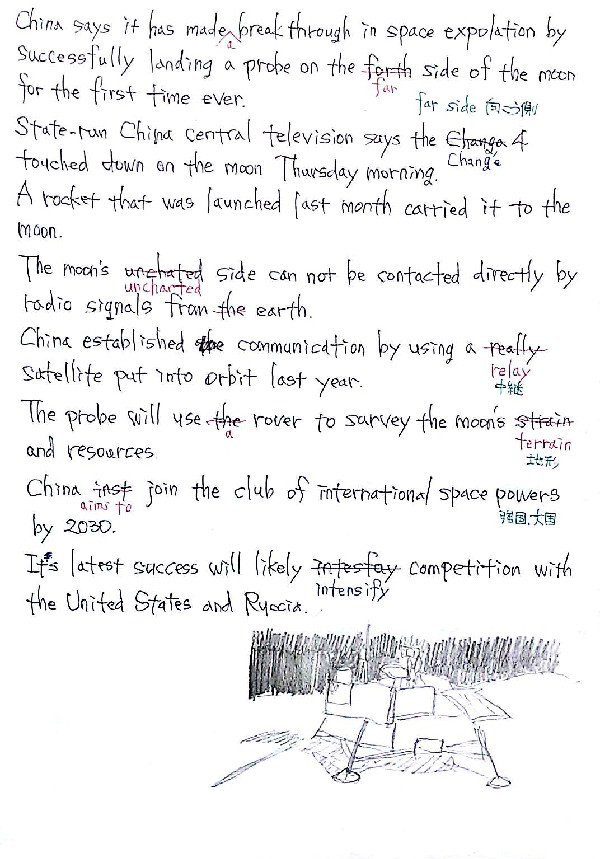 China says it has made breakthrough in space expolation by
a
successfully landing a probe on the forth side of the moon
far
for the first time ever.
far side 向こう側
State-run China central television says the Changa 4
Chang'e
touched down on the moon Thursday morning.
A rocket that was launched last month carried it to the
moon.
The moon's unchated side can not be contacted directly by
uncharted
radio signals from the earth.
China established the communication by using a really
relay
satellite put into orbit last year.
中継
The probe will use the rover to survey the moon's strain
a
terrain
and resources
地形
China inst join the club of international space powers
aims to
強国、大国
by 2030.
It's latest success will likely intesfay competition with
intensify
the United States and Ryccia.